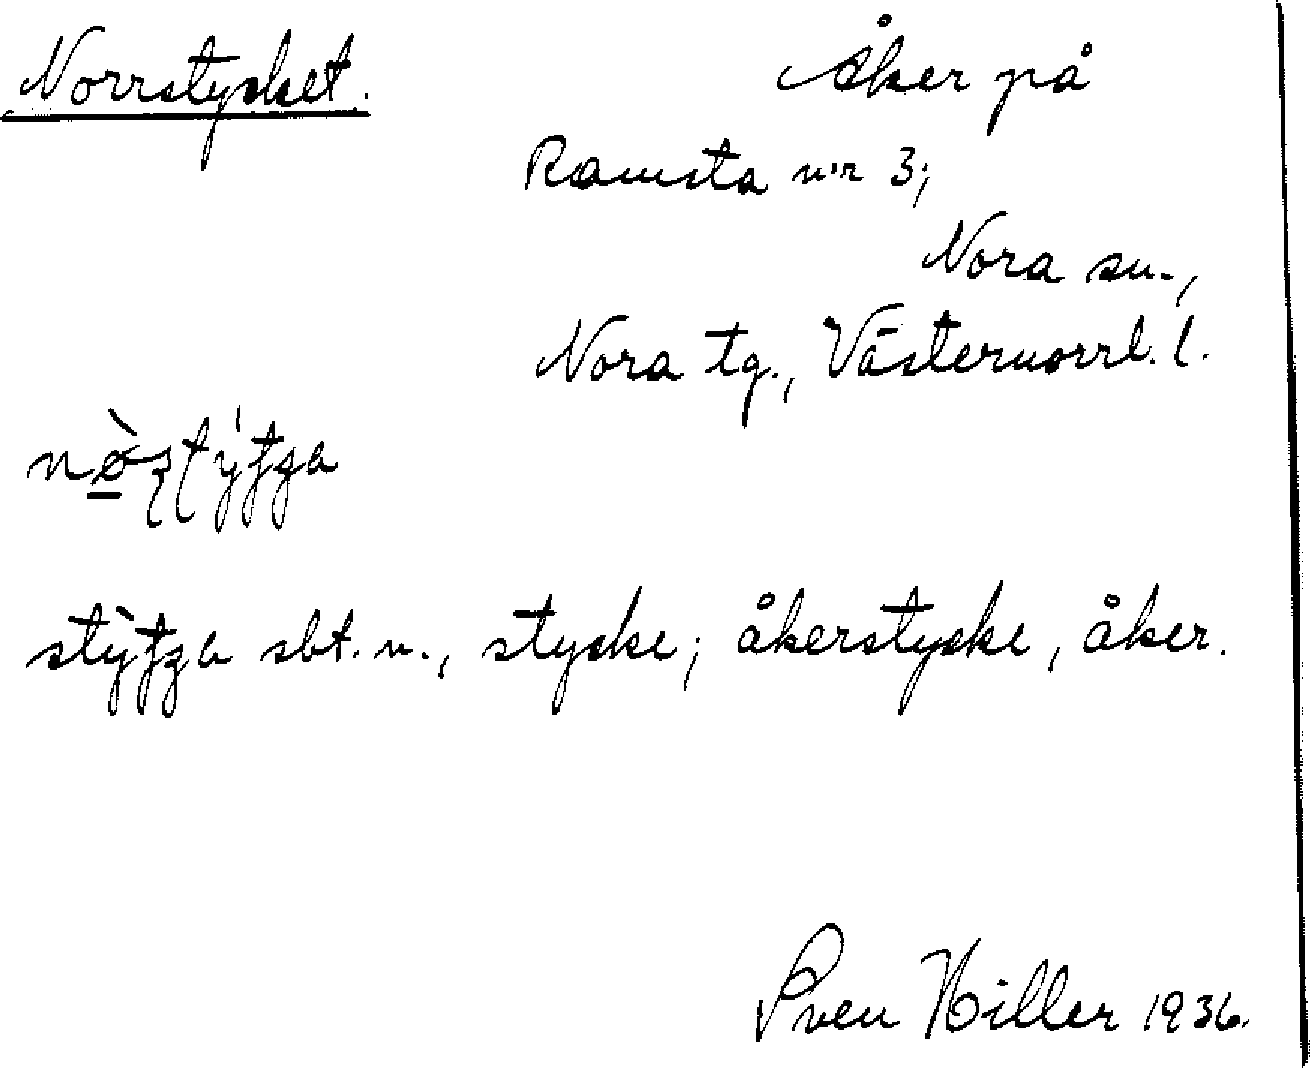 Norrstycket. Åker på
Ramsta n:r 3;
Nora sn.,
Nora tg., Västernorrl. l.
stycke; åkerstycke, åker.
Sven Hiller 1936.